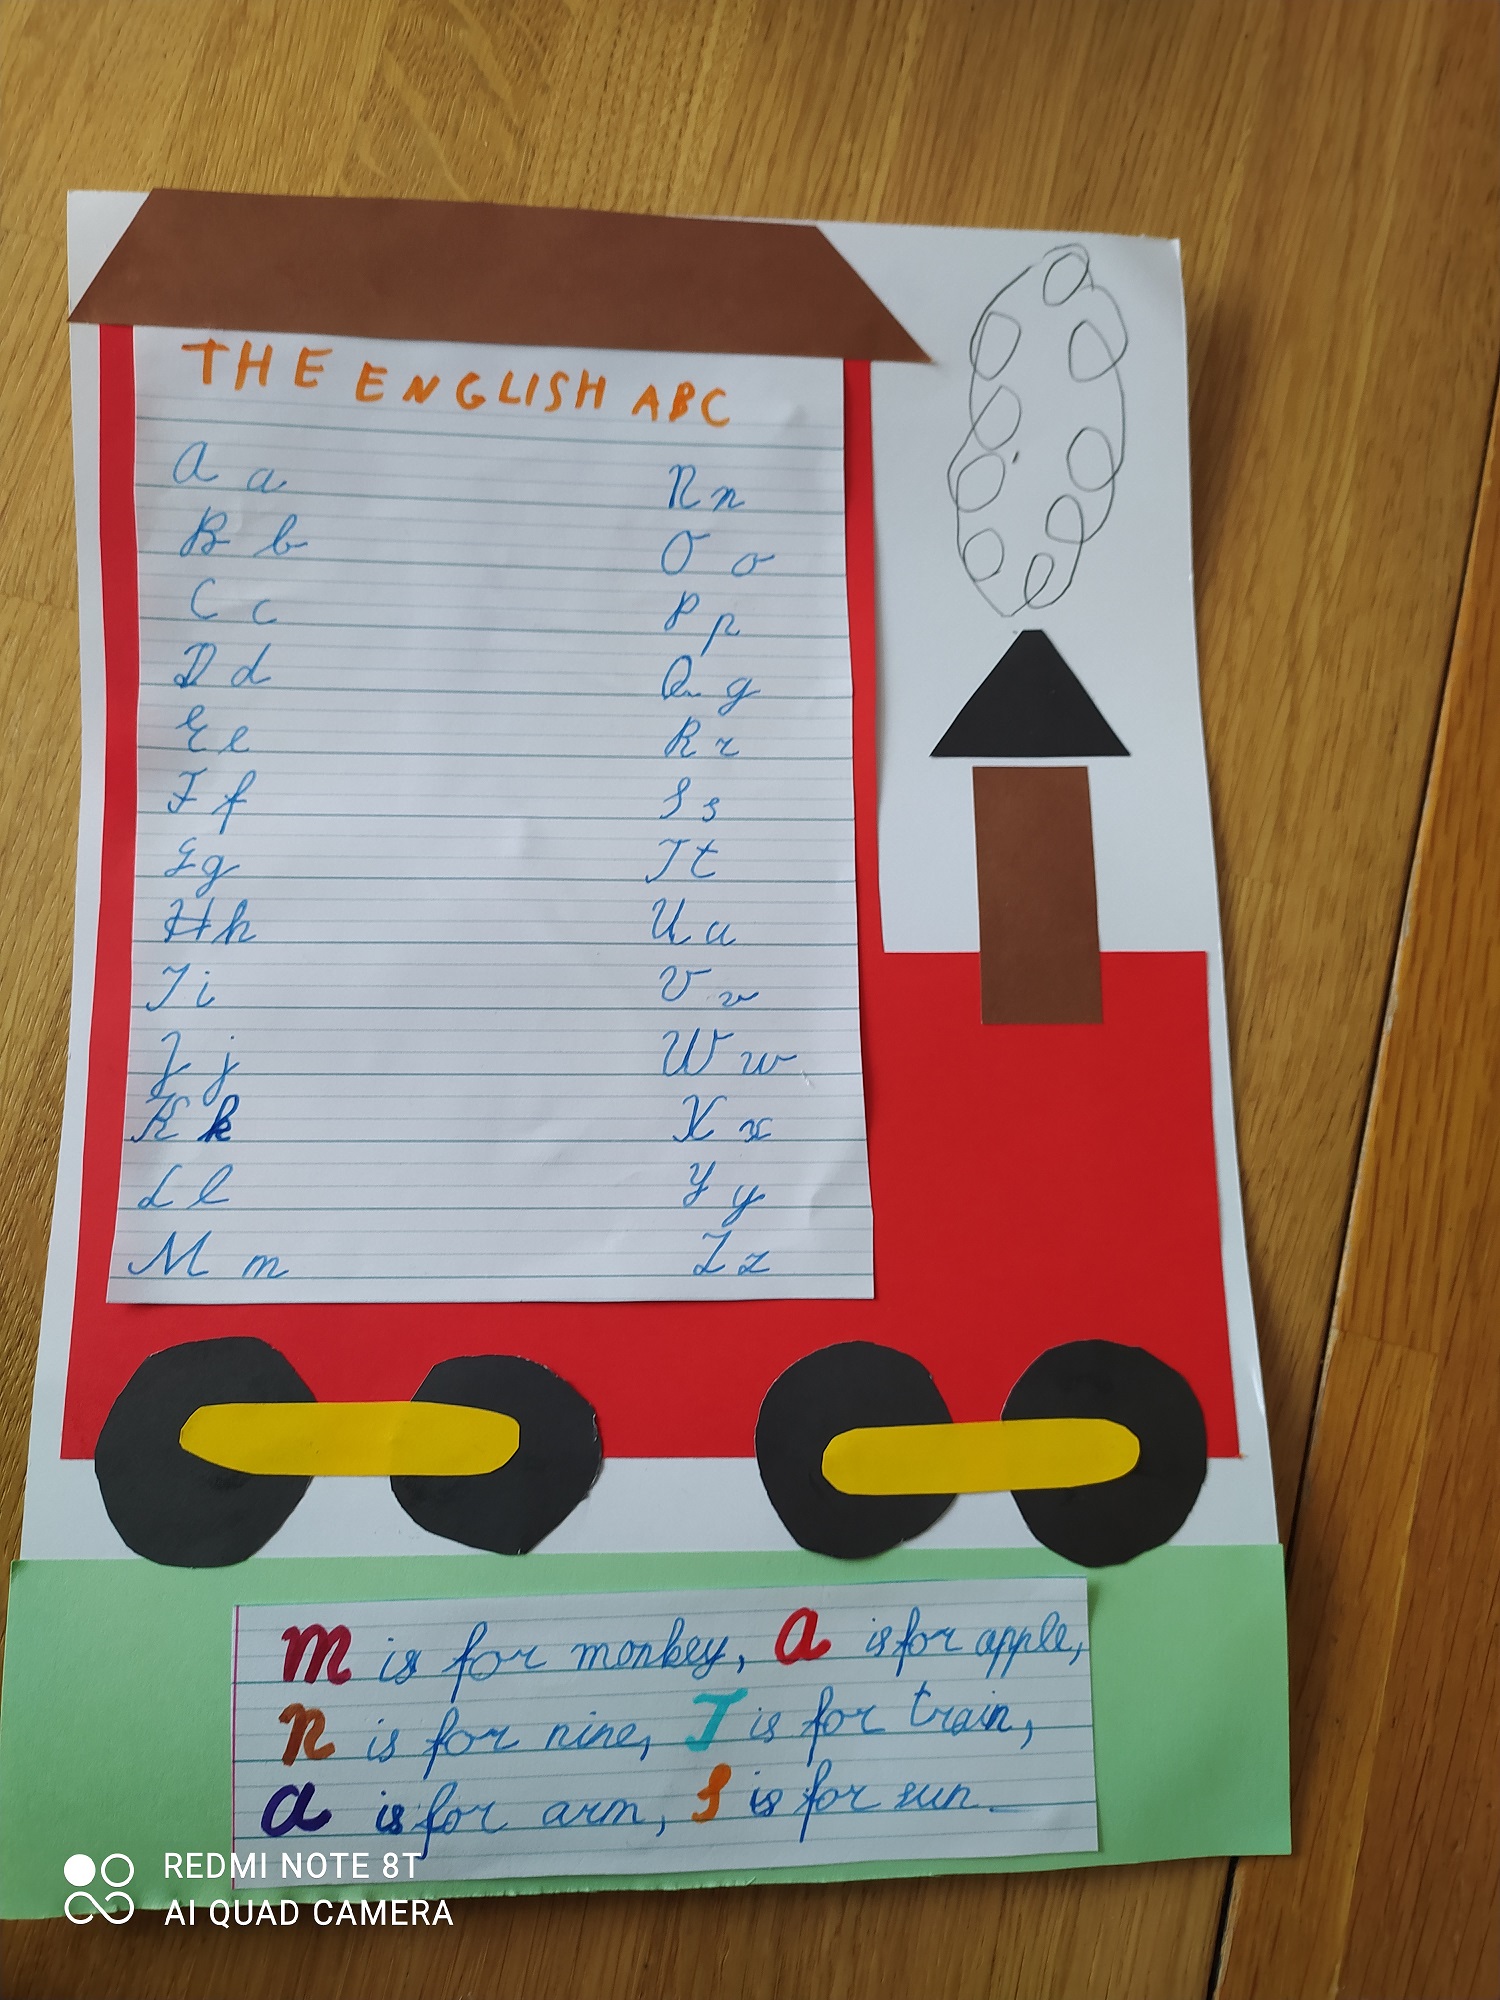 THE ENGLISH ABC
A a
B b
C c
D d
E e
F f
G g
H h
I i
J j
K k
L l
M m
N n
O o
P p
Q q
R r
S s
T t
U u
V v
W w
X x
Y y
Z z
M is for monkey, A is for apple,
N is for nine, T is for train,
A is for arm, S is for sun
REDMI NOTE 8T
AI QUAD CAMERA